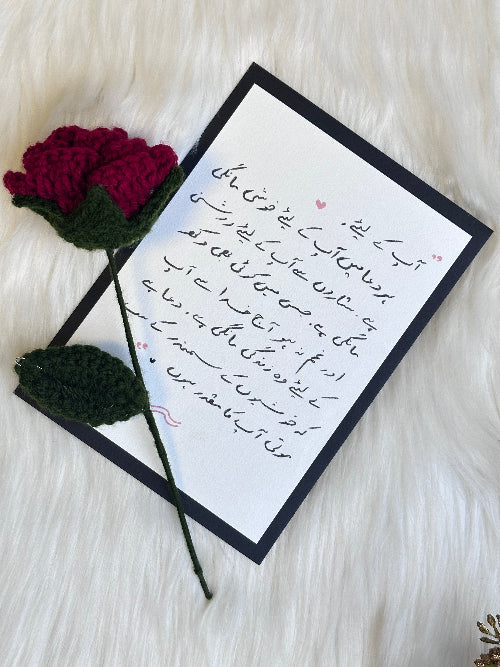 آپ کے لیئے ،
ہر دعا میں آپ کے لیئے خوشی مانگی
ہے۔ ستاروں سے آپ کے لیئے روشنی
مانگی ہے جس میں کوئی بھی دکھ
اور غم نہ ہو آج خدا سے آپ
کے لیئے وہ زندگی مانگی ہے۔ دعا ہے
کہ خوشیوں کے سمندر کے
موتی آپ کا مقدر ہوں